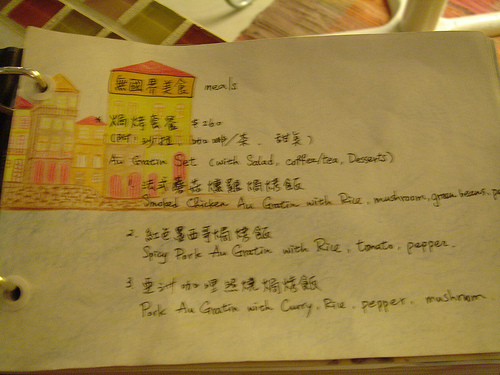 無國界美食 meals
焗烤套餐 $260
(附 沙拉、咖啡/茶、甜美)
Au Gratin Set (with Salad, coffee/tea, Desserts)
1. 法式蘑菇燻雞焗烤飯
Smoked Chicken Au Gratin with Rice, mushroom, green beans,
2. 紅色墨西哥焗烤飯
Spicy Pork Au Gratin with Rice, tomato, pepper.
3. 亞洲咖哩燒焗烤飯
Pork Au Gratin with Curry, Rice, pepper, mushroom